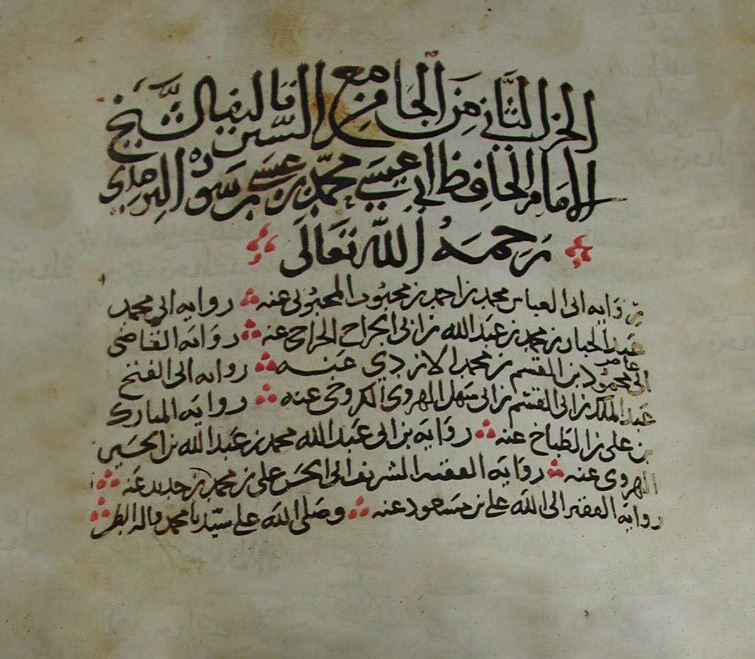 الجزء الثاني من الجامع من السنن تاليف الشيخ
الامام الحافظ ابي عيسى محمد بن عيسى بن سورة الترمذي
رحمه الله تعالى
من رواية ابى العباس محمد بن احمد بن محبوب المحبوبى عنه رواية ابي محمد
عبد الجبار بن محمد بن عبد الله بن ابى الجراح الجراحى عنه رواية القاضى
ابى عامر محمود بن القسم بن محمد الازدي عنه رواية ابى الفتح
عبد الملك بن ابى القسم بن ابى سهل الهروى الكروخى عنه رواية المبارك
بن على بن الطباخ عنه رواية بن ابى عبد الله محمد بن عبد الله بن الحسين
الهروى عنه رواية الفقيه الشريف ابى الحسن على بن محمد بن جديد عنه
رواية الفقير الى الله على بن مسعود عنه وصلى الله على سيدنا محمد واله